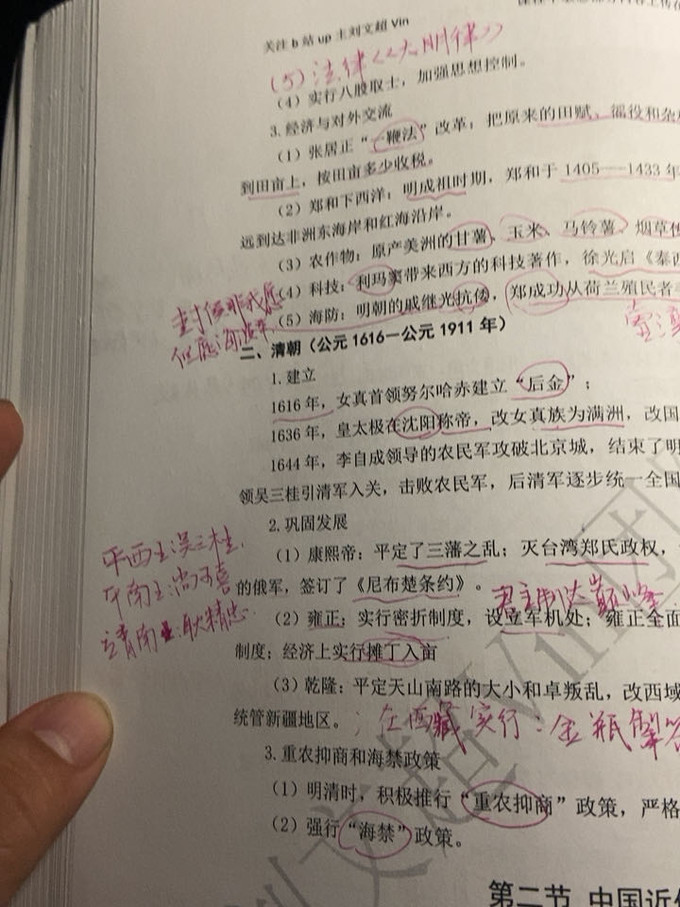 关注 b 站 up 主刘文超 Vin
(5) 法律《大明律》
(4) 实行八股取士，加强思想控制。
3. 经济与对外交流
(1) 张居正“一鞭法”改革：把原来的田赋、徭役和杂
到田亩上，按田亩多少收税。
(2) 郑和下西洋：明成祖时期，郑和于 1405——1433 年
远到达非洲东海岸和红海沿岸。
(3) 农作物：原产美洲的甘薯、玉米、马铃薯、烟草
(4) 科技：利玛窦带来西方的科技著作，徐光启《泰西
封侯非我意
(5) 海防：明朝的戚继光抗倭，郑成功从荷兰殖民者
但愿海波平
二、清朝（公元 1616—公元 1911 年）
1. 建立
1616 年，女真首领努尔哈赤建立“后金”；
1636 年，皇太极在沈阳称帝，改女真族为满洲，改国
1644 年，李自成领导的农民军攻破北京城，结束了明
领吴三桂引清军入关，击败农民军，后清军逐步统一全国
2. 巩固发展
平西王吴三桂
(1) 康熙帝：平定了三藩之乱；灭台湾郑氏政权，
平南王：尚可喜
的俄军，签订了《尼布楚条约》。
君主制达巅峰
靖南王：耿精忠
(2) 雍正：实行密折制度，设立军机处；雍正全面
制度；经济上实行摊丁入亩
(3) 乾隆：平定天山南路的大小和卓叛乱，改西域
统管新疆地区。；在西藏实行：金瓶掣
3. 重农抑商和海禁政策
(1) 明清时，积极推行“重农抑商”政策，严格
(2) 强行“海禁”政策。
第二节 中国近